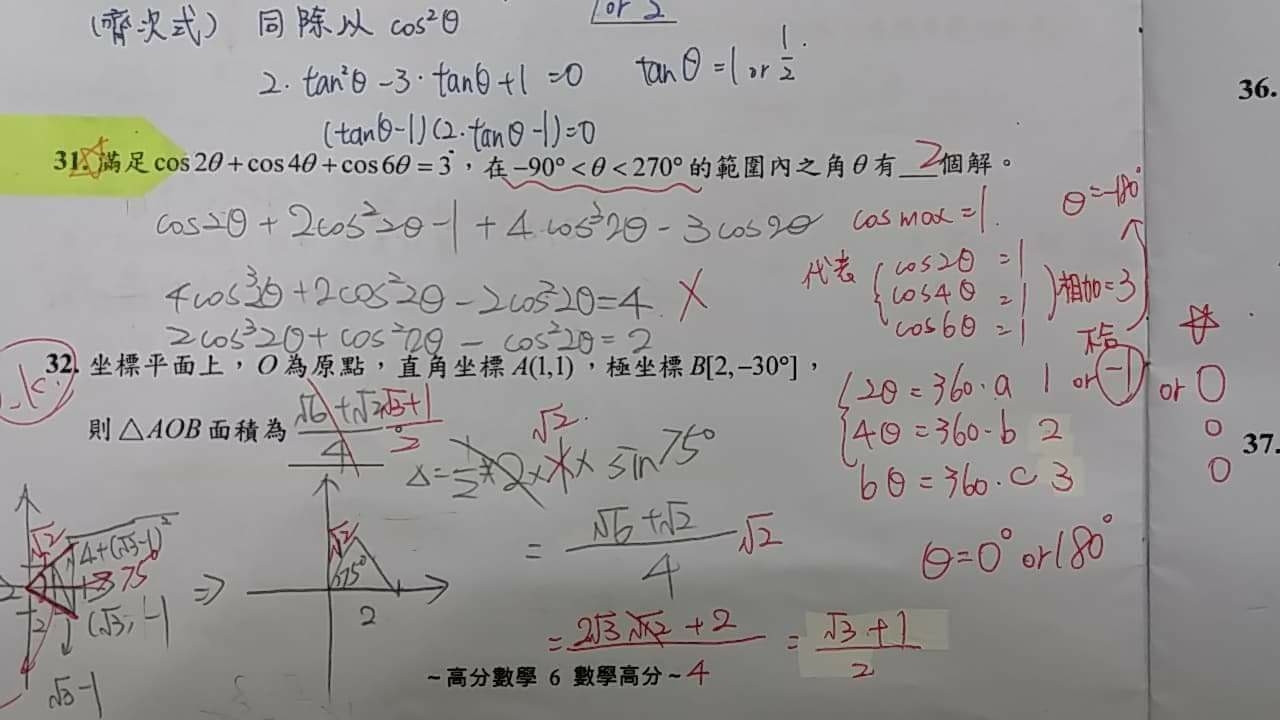 (齊次式) 同除以 cos²θ
or 2
2·tan²θ-3·tanθ+1=0 tanθ=1 or 1/2
(tanθ-1)(2·tanθ-1)=0
36.
31. 滿足 cos2θ+cos4θ+cos6θ=3,在 -90°<θ<270° 的範圍內之角θ有 2 個解。
cos2θ+2cos²2θ-1+4cos³2θ-3cos2θ
cos max=1.
θ=-180°
4cos³2θ+2cos²2θ-2cos2θ=4 X
代表 { cos2θ=1
cos4θ=1
cos6θ=1
相加=3
2cos³2θ+cos²2θ-cos²2θ=2
32. 坐標平面上,O 為原點,直角坐標 A(1,1),極坐標 B[2,-30°],
則△AOB面積為 √3+1/2
√6+√2/4
△=1/2×2×√2×sin75°
2θ=360·a 1 or -1 or 0
4θ=360·b 2 0
6θ=360·c 3 0
37.
θ=0° or 180°
√2
√4+(√3-1)²
75°
(√3,-1
2
√3-1
⇒
√2
75°
2
=√6+√2/4 √2
=2√3+2/4=√3+1/2
~高分數學 6 數學高分~